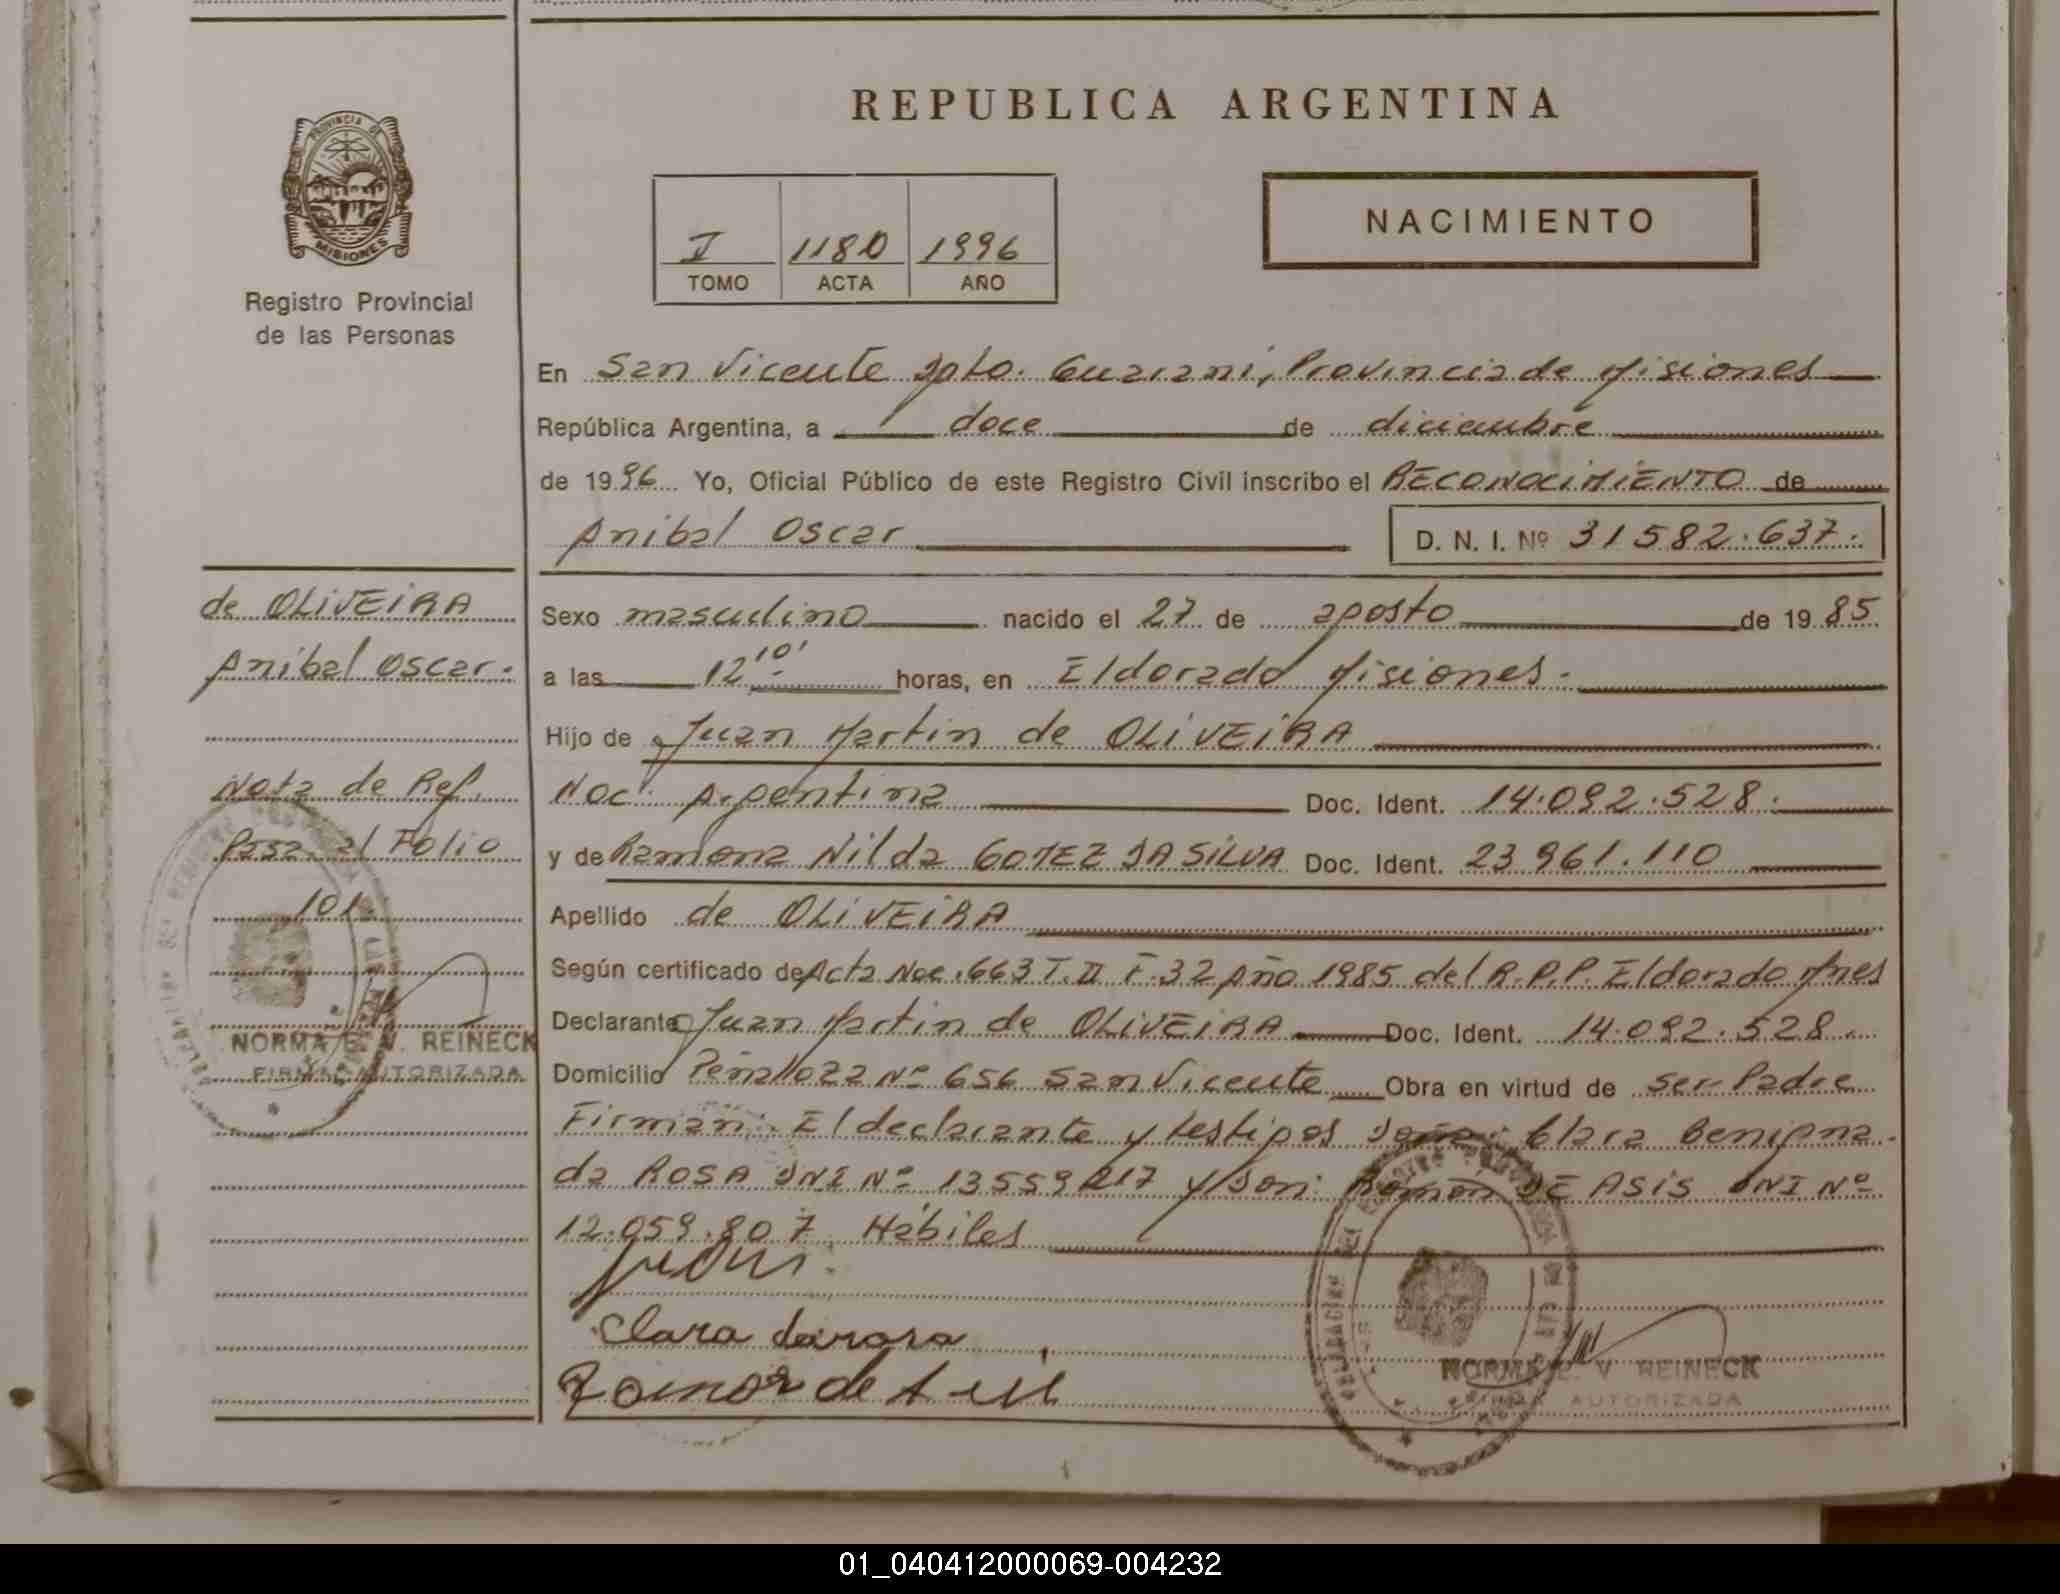 REPUBLICA ARGENTINA
PROVINCIA DE
MISIONES
Registro Provincial
de las Personas
I 1180 1996
TOMO ACTA AÑO
NACIMIENTO
En San Vicente Dpto. Guaraní, Provincia de Misiones
República Argentina, a doce de diciembre
de 1996 Yo, Oficial Público de este Registro Civil inscribo el RECONOCIMIENTO de
Anibal Oscar D. N. I. Nº 31582.637.
de OLIVEIRA
Anibal Oscar.
Nota de Ref.
Pasa al Folio
101.
NORMA E. V. REINECK
FIRMA AUTORIZADA
Sexo masculino nacido el 27 de agosto de 1985
a las 12 10' horas, en Eldorado Misiones.
Hijo de Juan Martin de OLIVEIRA
Nac. Argentina Doc. Ident. 14.092.528.
y de Ramona Nilda GOMEZ DA SILVA Doc. Ident. 23961.110
Apellido de OLIVEIRA
Según certificado de Acta Nac. 663 T. II F. 32 Año 1985 del R.P.P. Eldorado Mnes
Declarante Juan Martin de OLIVEIRA Doc. Ident. 14.092.528.
Domicilio Peñaloza Nº 656 San Vicente Obra en virtud de ser Padre
Firman: El declarante y testigos Doña: Clara Benigna
da ROSA DNI Nº 13559217 y Don: Ramón DE ASIS DNI Nº
12.059.807 Hábiles
Clara da rosa
Ramon de Asis
NORMA E. V. REINECK
FIRMA AUTORIZADA
01_040412000069-004232